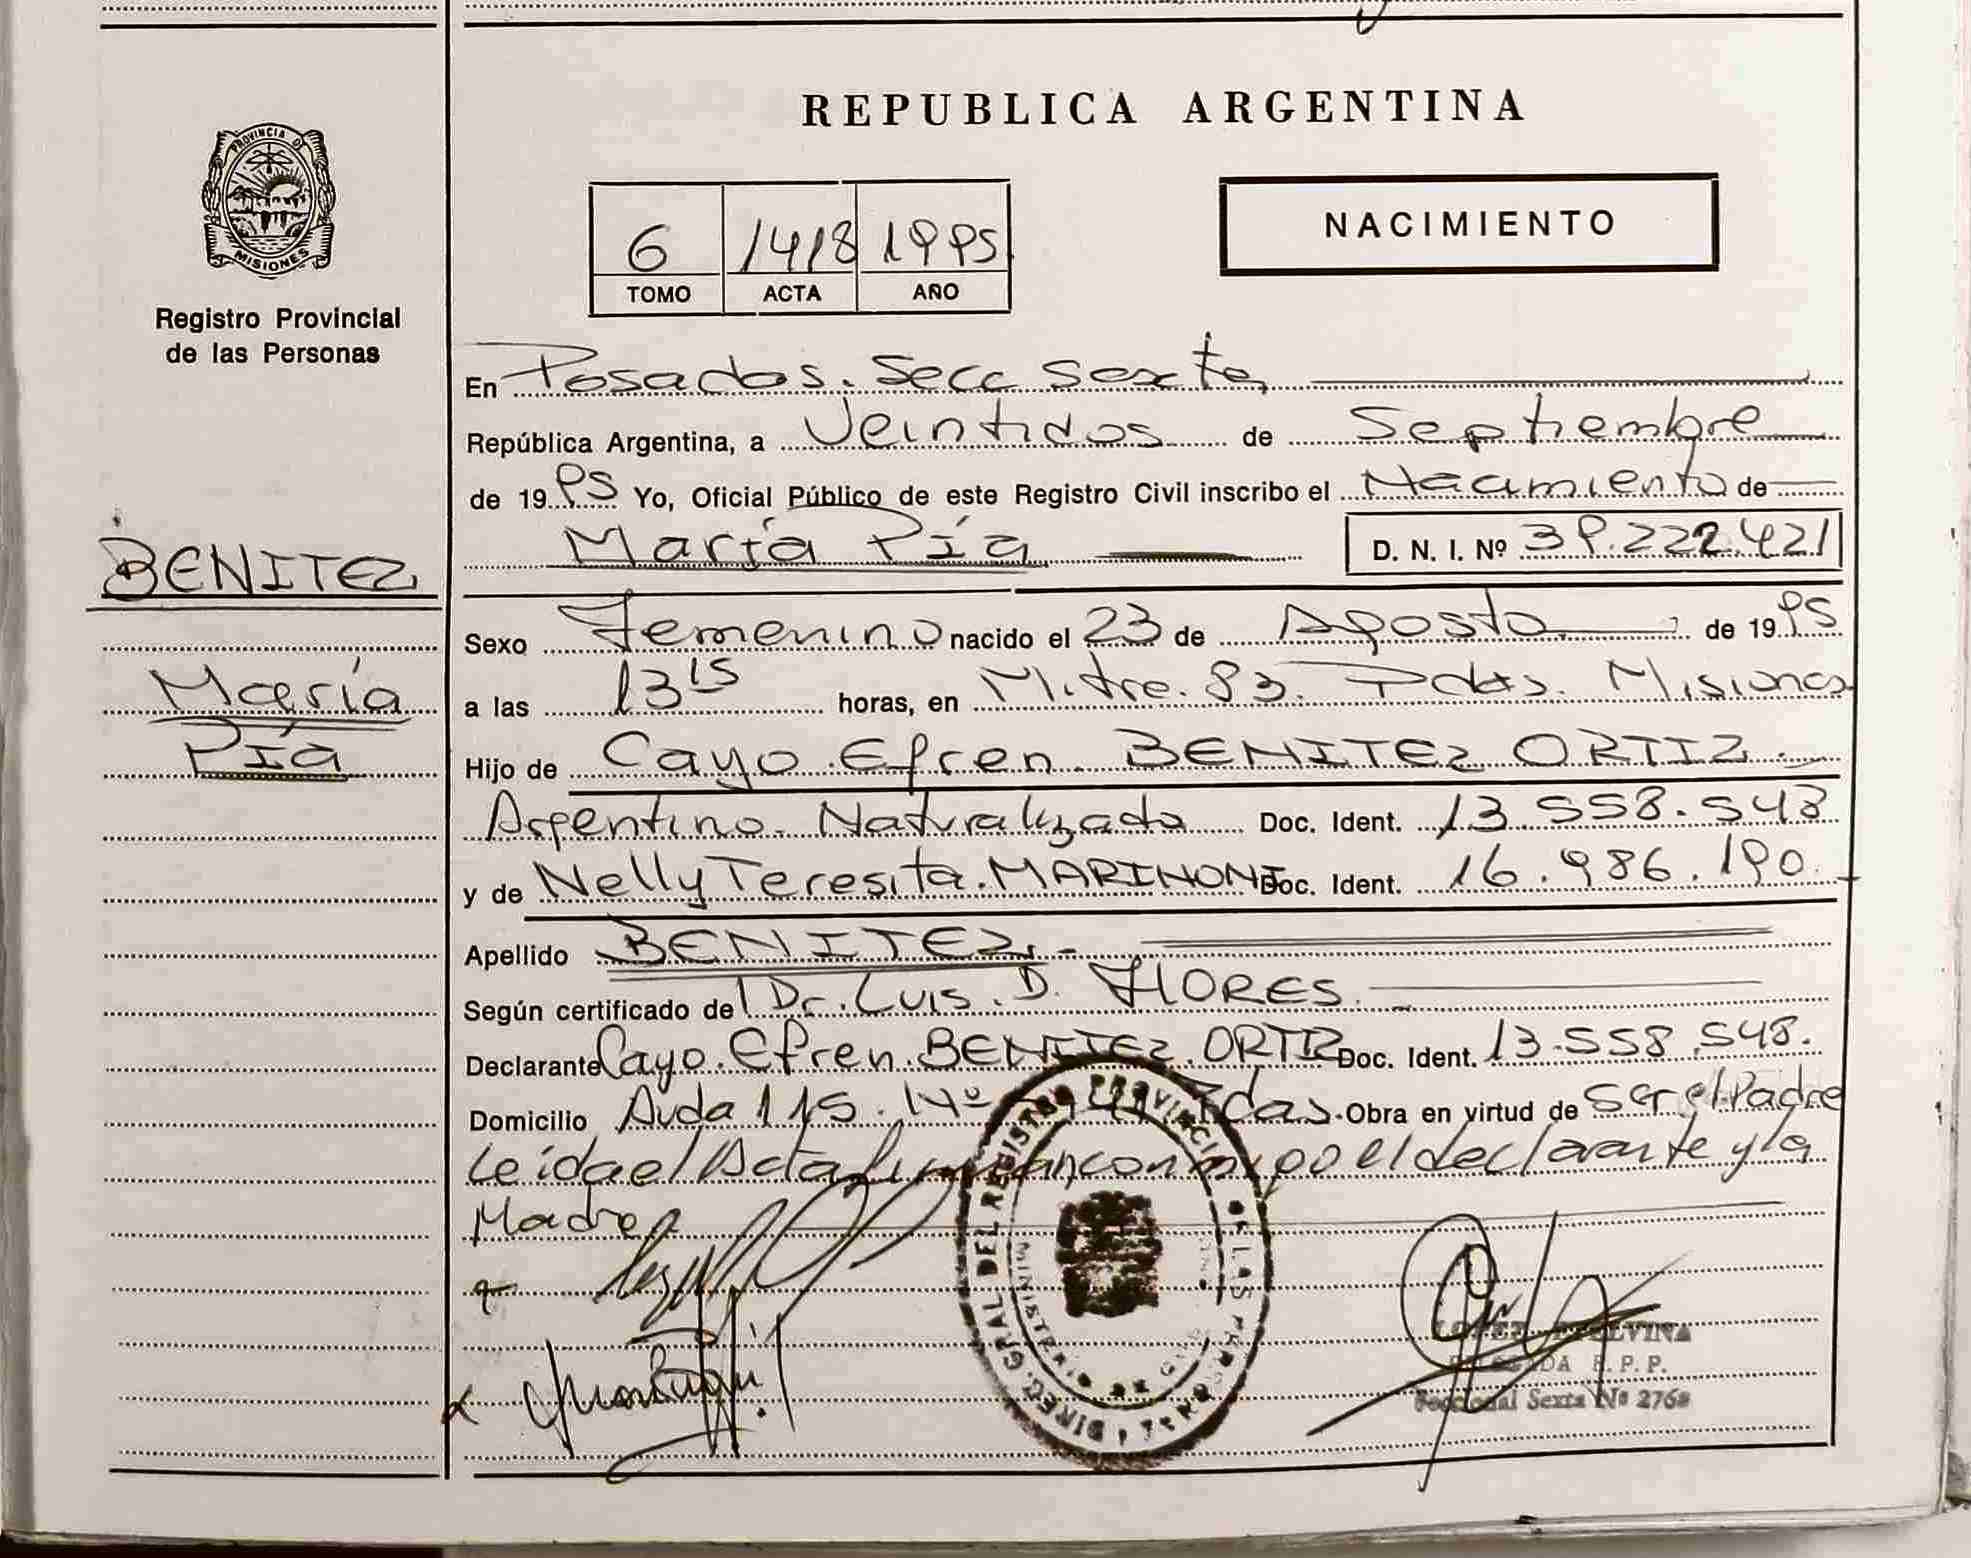 REPUBLICA ARGENTINA
PROVINCIA DE
MISIONES
Registro Provincial
de las Personas
NACIMIENTO
6 1418 1995
TOMO ACTA AÑO
En Posadas. Secc Sexta
República Argentina, a Veintidos de Septiembre
de 1995 Yo, Oficial Público de este Registro Civil inscribo el Nacimiento de
María Pía D. N. I. Nº 39.222.421
BENITEZ
María
Pía
Sexo Femenino nacido el 23 de Agosto de 1995
a las 13 15 horas, en Mitre. 83. Pdas. Misiones
Hijo de Cayo Efren BENITEZ ORTIZ
Argentino. Naturalizado Doc. Ident. 13.558.548
y de Nelly Teresita. MARINONI Doc. Ident. 16.986.190.
Apellido BENITEZ.-
Según certificado de Dr. Luis. D. FLORES.
Declarante Cayo. Efren. BENITEZ. ORTIZ Doc. Ident. 13.558.548.
Domicilio Avda 115. Nº Pdas. Obra en virtud de ser el Padre
Leida el Acta firman conmigo el declarante y la
Madre
DIREC. GRAL DEL REGISTRO PROVINCIAL DE LAS PERSONAS
MINISTERIO DE
LOPEZ ETELVINA
R. P. P.
Seccional Sexta Nº 2768